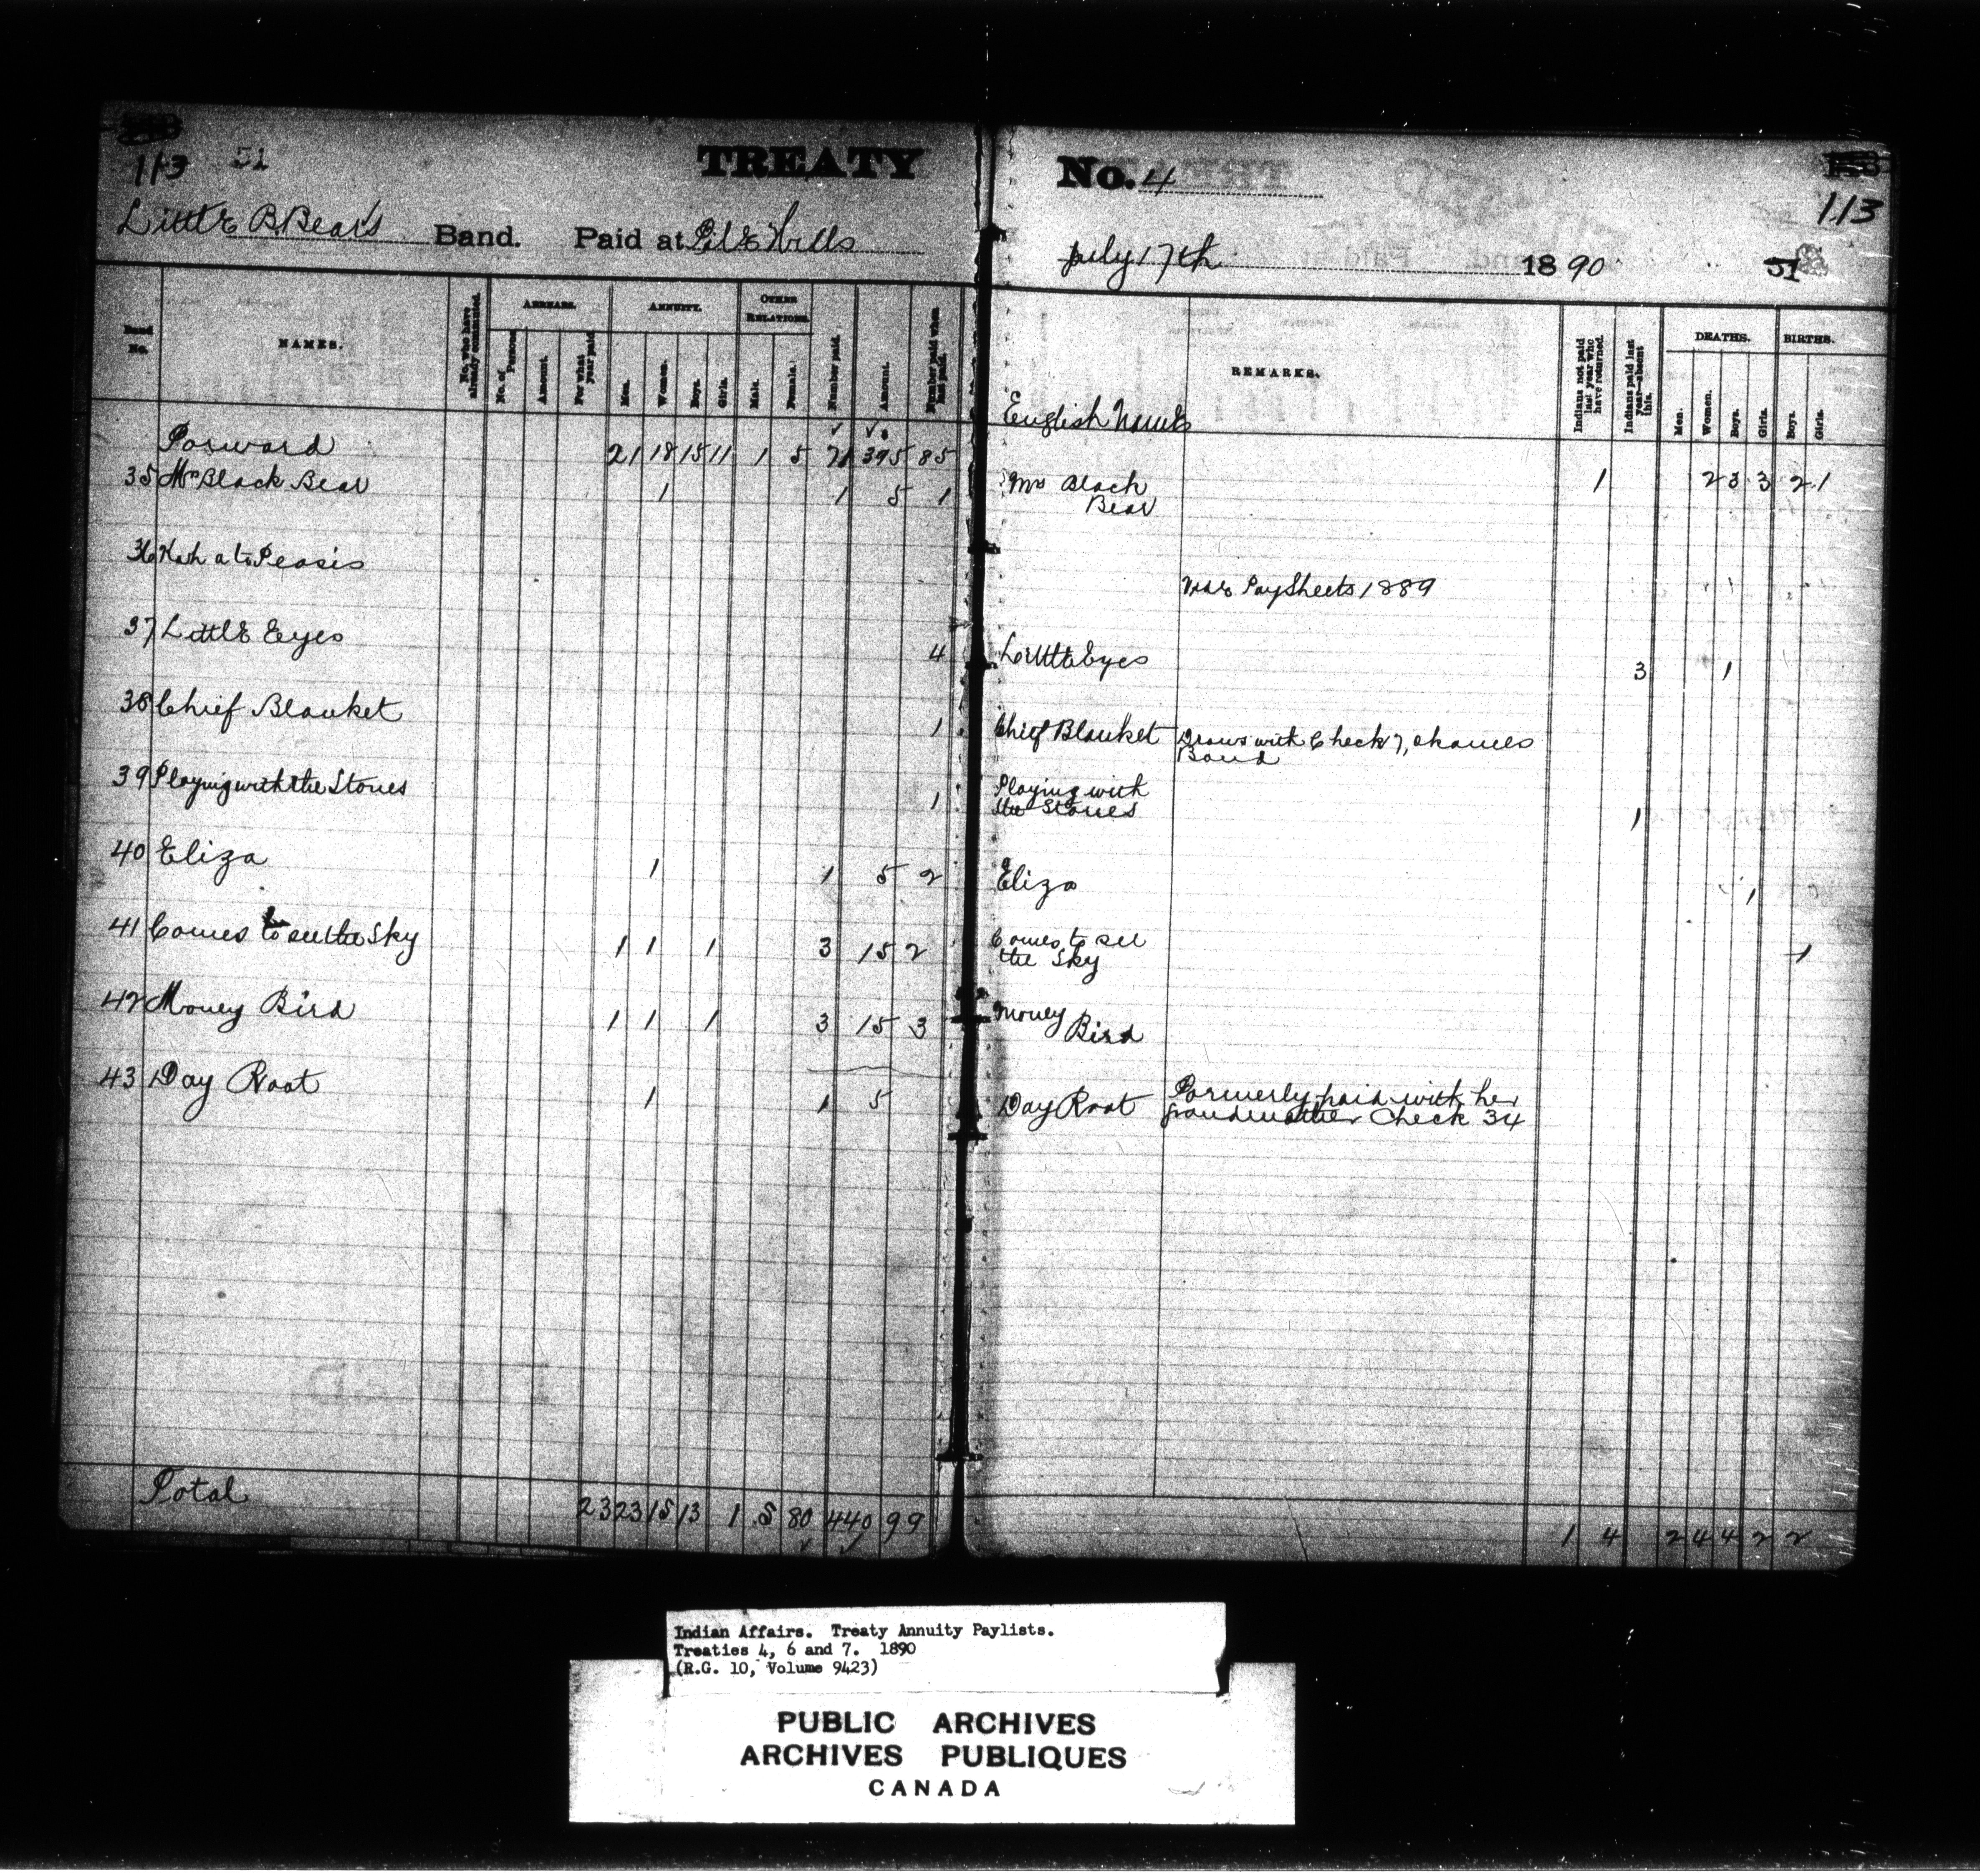 113 51 TREATY
Little B. Bear's Band. Paid at File Hills
Band No. NAMES. No. who have already commuted. ARREARS. No. of Persons Amount. For what year paid ANNUITY. Men. Women. Boys. Girls. OTHER RELATIONS. Male. Female. Number paid. Amount. Number paid when last paid.
Forward 21 18 15 11 1 5 71 395 85
35 Mrs Black Bear 1 1 5 1
36 Kah a to Peasis
37 Little Eyes 4
38 Chief Blanket 1
39 Playing with the Stones 1
40 Eliza 1 1 5 2
41 Comes to see the Sky 1 1 1 3 15 2
42 Money Bird 1 1 1 3 15 3
43 Day Root 1 1 5
Total 23 23 15 13 1 5 80 440 99
No. 4
113
July 17th 1890 51
REMARKS. Indians not paid last year who have returned. Indians paid last year—absent this. DEATHS. Men. Women. Boys. Girls. BIRTHS. Boys. Girls.
English Names
Mrs Black 1 2 3 3 2 1
Bear
Pay Sheets 1889
Little Eyes 3 1
Chief Blanket Draws with Check 7, Okanees
Band
Playing with
the Stones 1
Eliza 1
Comes to see
the Sky 1
Money
Bird
Day Root Formerly paid with her
grandmother Check 34
1 4 2 4 4 2 2
Indian Affairs. Treaty Annuity Paylists.
Treaties 4, 6 and 7. 1890
(R.G. 10, Volume 9423)
PUBLIC ARCHIVES
ARCHIVES PUBLIQUES
CANADA